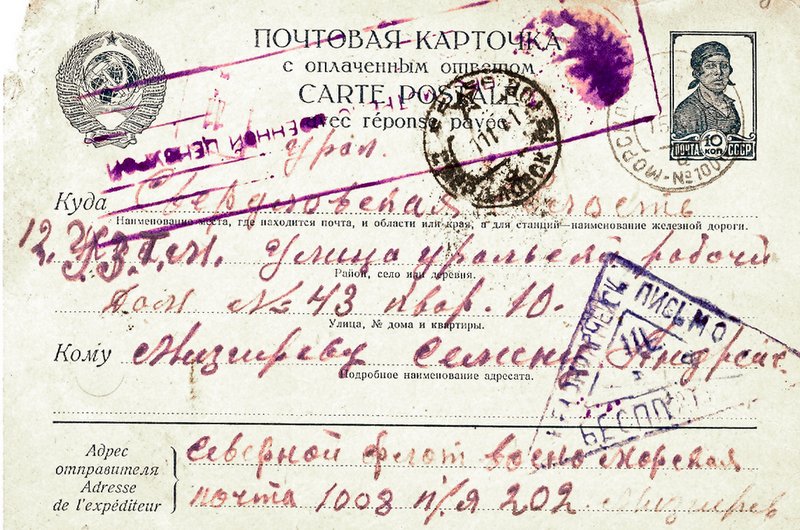 ПОЧТОВАЯ КАРТОЧКА
с оплаченным ответом
CARTE POSTALE
avec réponse payée
ВОЕННОЙ ЦЕНЗУРОЙ
ПОЧТА 10 КОП СССР
МОРСК №1003
Урал.
Куда Свердловская область
Наименование места, где находится почта, и области или края, а для станций—наименование железной дороги.
12. У.З.Т.М. Улица уральский рабочий
Район, село или деревня.
Дом № 43 квар. 10.
Улица, № дома и квартиры.
Кому Мизгиреву Семену Андрейс.
Подробное наименование адресата.
ПИСЬМО
БЕСПЛ
Адрес отправителя
Adresse de l'expéditeur
Северной флот воено морская
почта 1003 п/я 202 Мизгирев